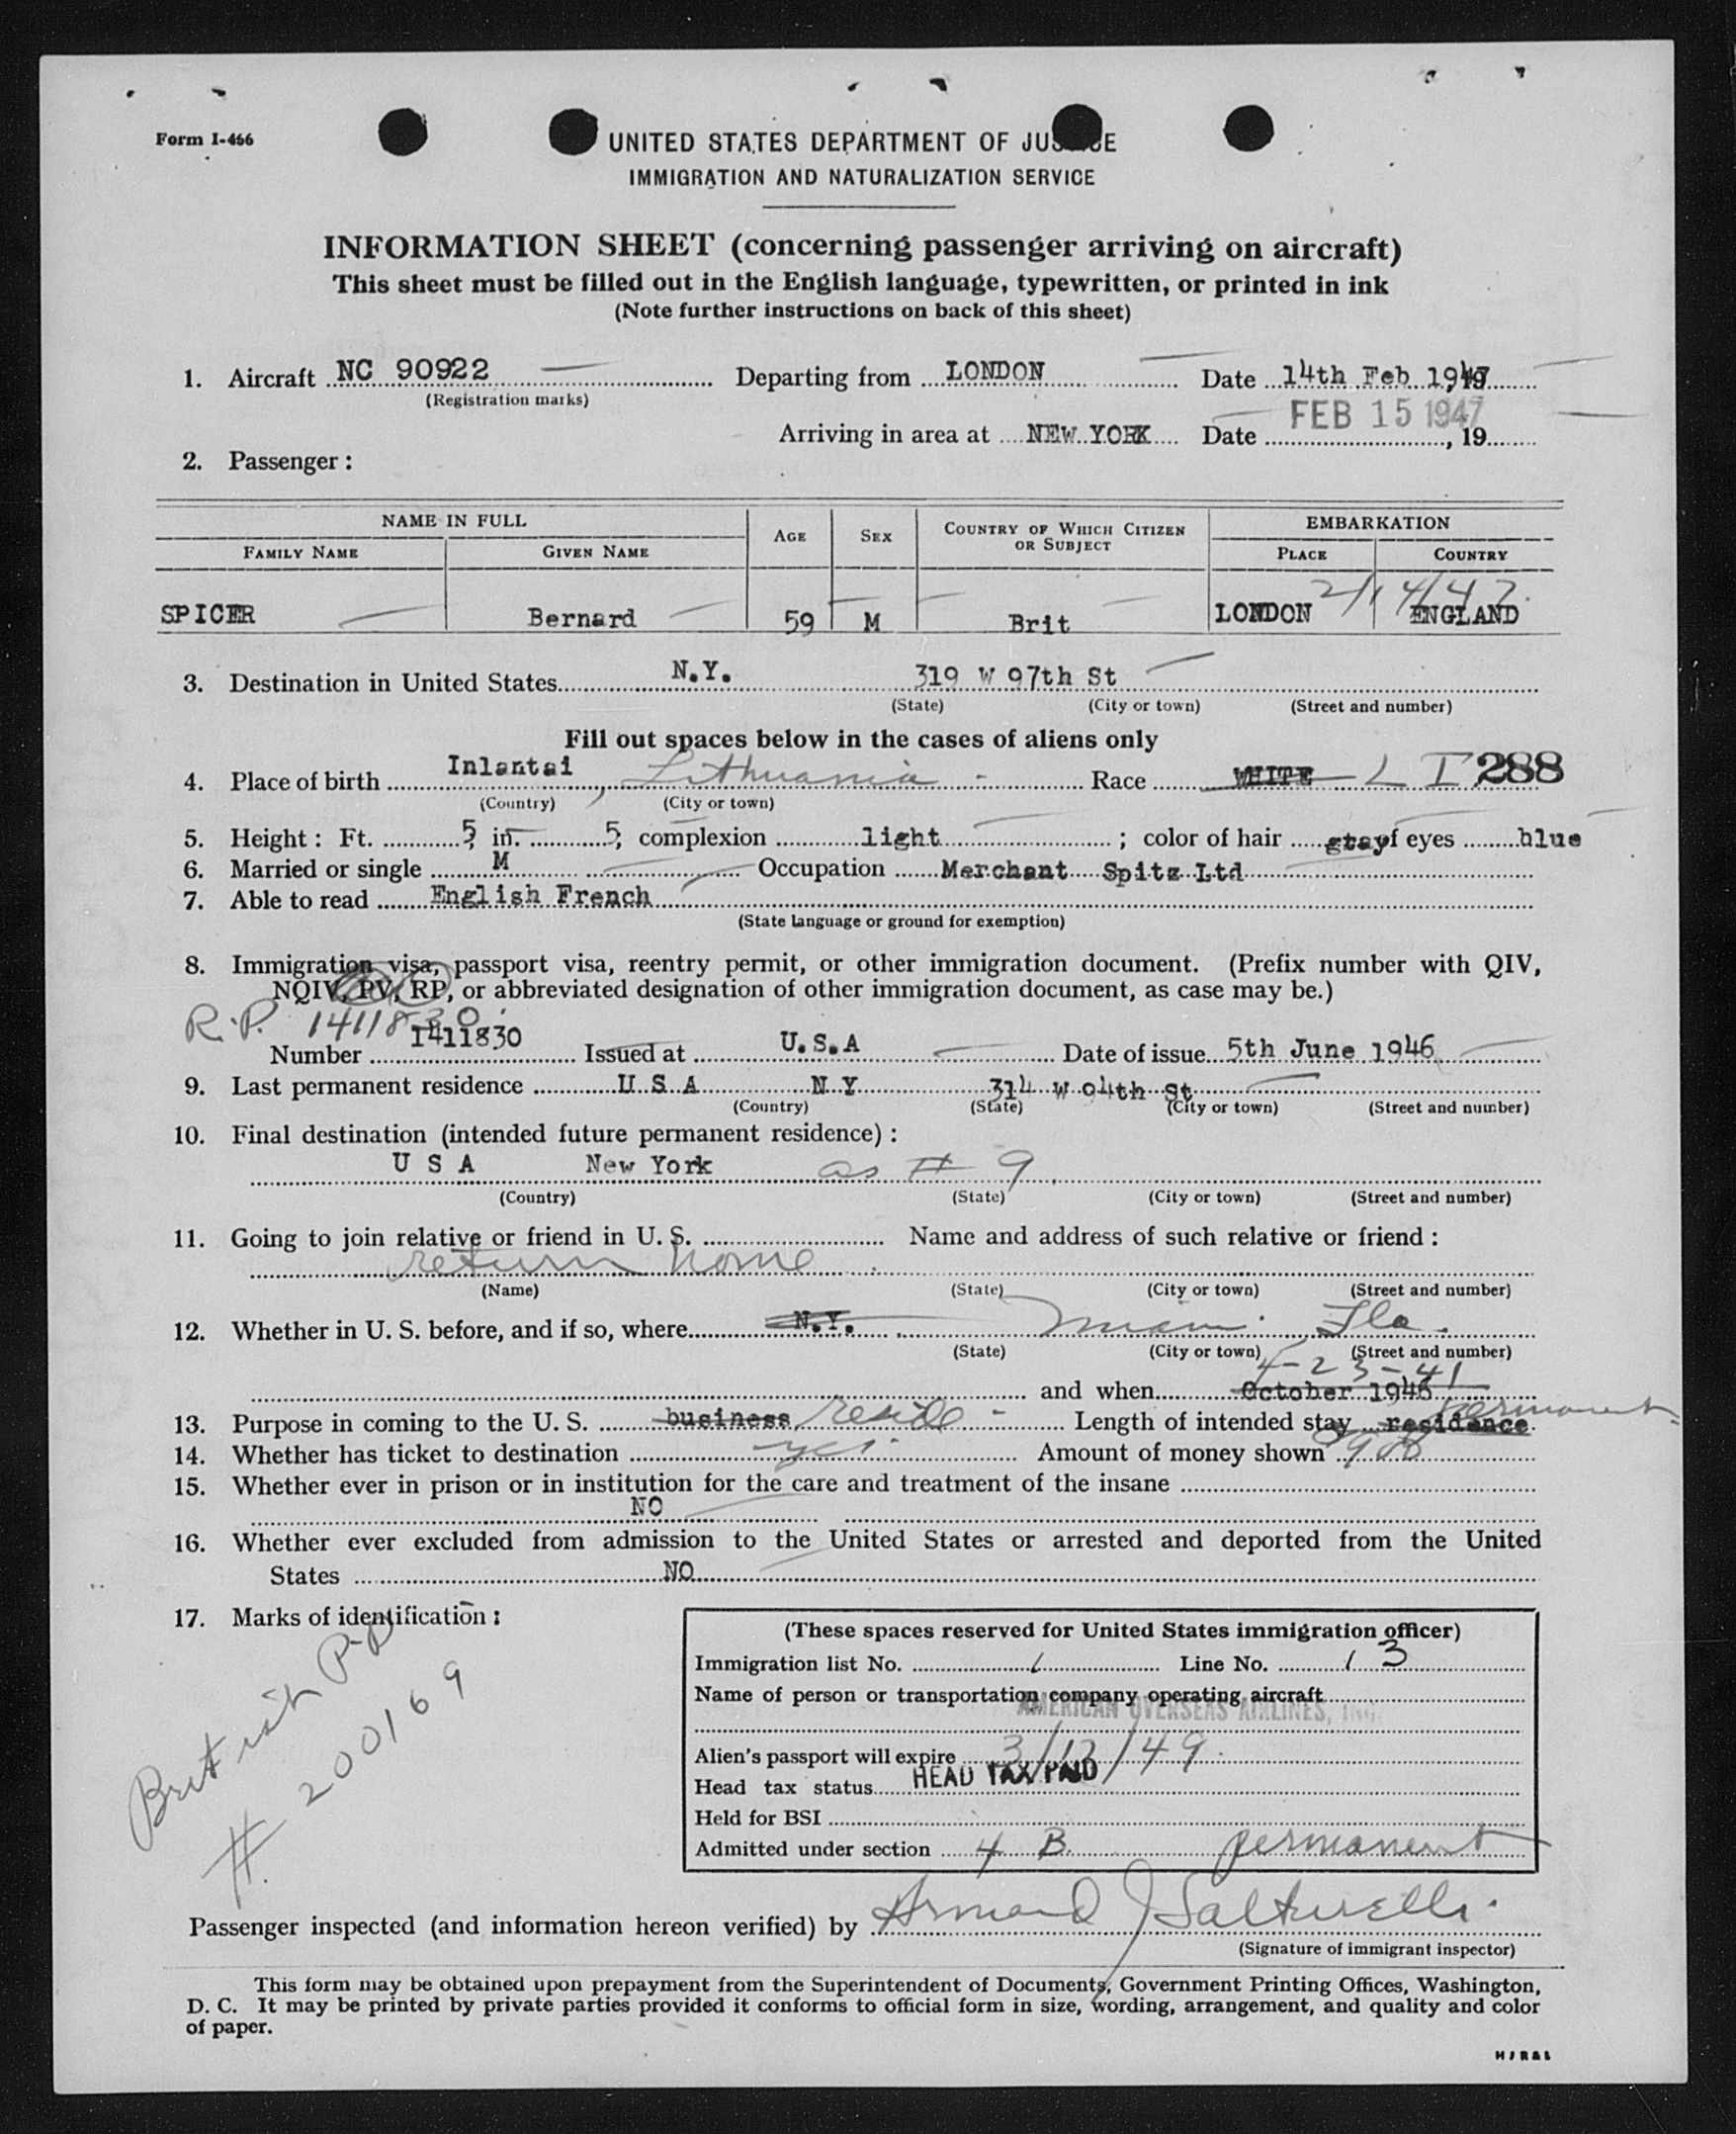 Form I-466
UNITED STATES DEPARTMENT OF JUSTICE
IMMIGRATION AND NATURALIZATION SERVICE
INFORMATION SHEET (concerning passenger arriving on aircraft)
This sheet must be filled out in the English language, typewritten, or printed in ink
(Note further instructions on back of this sheet)
1. Aircraft NC 90922 Departing from LONDON Date 14th Feb 1947
(Registration marks)
FEB 15 1947
Arriving in area at NEW YORK Date , 19
2. Passenger :
NAME IN FULL AGE SEX COUNTRY OF WHICH CITIZEN OR SUBJECT EMBARKATION
FAMILY NAME GIVEN NAME PLACE COUNTRY
2/14/47.
SPICER Bernard 59 M Brit LONDON ENGLAND
3. Destination in United States N.Y. 319 W 97th St
(State) (City or town) (Street and number)
Fill out spaces below in the cases of aliens only
4. Place of birth Inlantai, Lithuania - Race WHITE L I 288
(Country) (City or town)
5. Height : Ft. 5, in. 5; complexion light ; color of hair gray of eyes blue
6. Married or single M Occupation Merchant Spitz Ltd
7. Able to read English French
(State language or ground for exemption)
8. Immigration visa, passport visa, reentry permit, or other immigration document. (Prefix number with QIV,
NQIV, PV, RP, or abbreviated designation of other immigration document, as case may be.)
R.P. 1411830
Number 1411830 Issued at U.S.A Date of issue 5th June 1946
9. Last permanent residence U S A N Y 314 W 94th St
(Country) (State) (City or town) (Street and number)
10. Final destination (intended future permanent residence) :
U S A New York as # 9
(Country) (State) (City or town) (Street and number)
11. Going to join relative or friend in U. S. Name and address of such relative or friend :
return home
(Name) (State) (City or town) (Street and number)
12. Whether in U. S. before, and if so, where N.Y. Miami Fla.
(State) (City or town) (Street and number)
4-23-41
and when October 1946
13. Purpose in coming to the U. S. business reside - Length of intended stay residence permanent
14. Whether has ticket to destination yes. Amount of money shown
15. Whether ever in prison or in institution for the care and treatment of the insane
NO
16. Whether ever excluded from admission to the United States or arrested and deported from the United
States NO
17. Marks of identification :
British P.P.
# 200169
(These spaces reserved for United States immigration officer)
Immigration list No. 1 Line No. 13
Name of person or transportation company operating aircraft
AMERICAN OVERSEAS AIRLINES, INC.
Alien's passport will expire 3/13/49.
Head tax status HEAD TAX PAID
Held for BSI
Admitted under section 4 B. permanent
Passenger inspected (and information hereon verified) by Armand J Salturelli.
(Signature of immigrant inspector)
This form may be obtained upon prepayment from the Superintendent of Documents, Government Printing Offices, Washington,
D. C. It may be printed by private parties provided it conforms to official form in size, wording, arrangement, and quality and color
of paper.